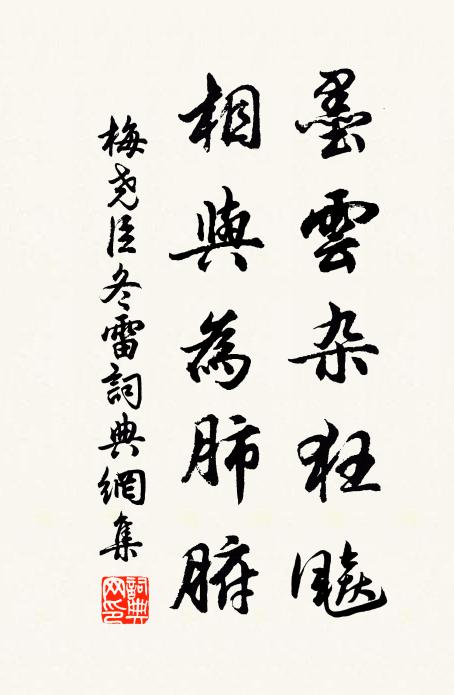 墨雲杂狂飈
相與為肺腑
梅尧臣冬雷詞典網集
詞典網印